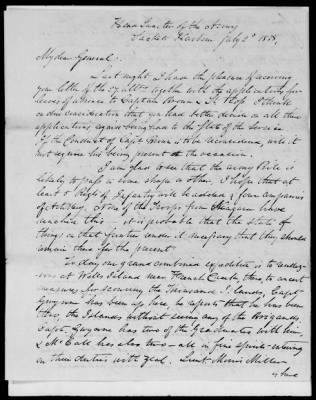 Head Quarters of the Army
Sackets Harbour July 2d 1838,
My dear General,
Last night I have the pleasure of receiving
your letter of the 27 ulto. together with the applications for
leaves of absence to Captain Brown & Lt. I think
on due consideration that you had better decide on all these
applications against being true to the State of the Service
If the conduct of Capt. Howe is to be reconsidered, will it
not require his being present on the occasion.
I am glad to see that the Army Bill is
likely to pass in some shape or other. I hope that at
least 5 Regts of Infantry will be added & four companies
of Artillery. None of the troops from Niagara have
reached this – it is probable that the state of
things on that frontier render it necessary that they should
remain there for the present.
To day our grand combined expedition is to rendez-
vous at Wells Island near French Creek, there to concert
measures for scouring the Thousand Islands. Capt.
Gwynne has been up here, he reports that he has been
thro' the Islands without seeing any of the Brigands,
Capt. Gwynne has two of the Graduates with him,
& McCall has also two – all in fine spirits – entering
on their duties with zeal. Lieut. Morris Miller
is here